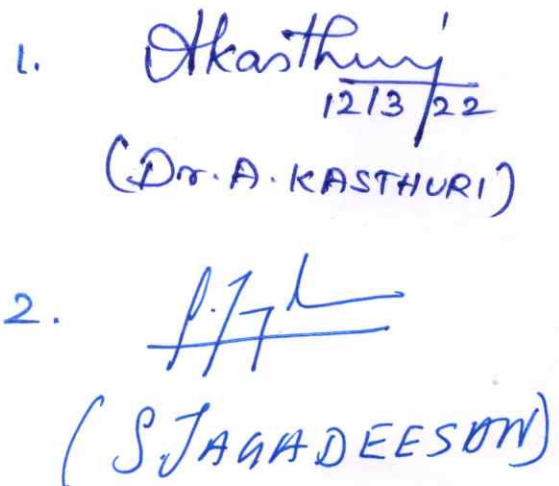 1. Akasthuri
12/3/22
(Dr. A. KASTHURI)
2.
(S. JAGADEESAN)